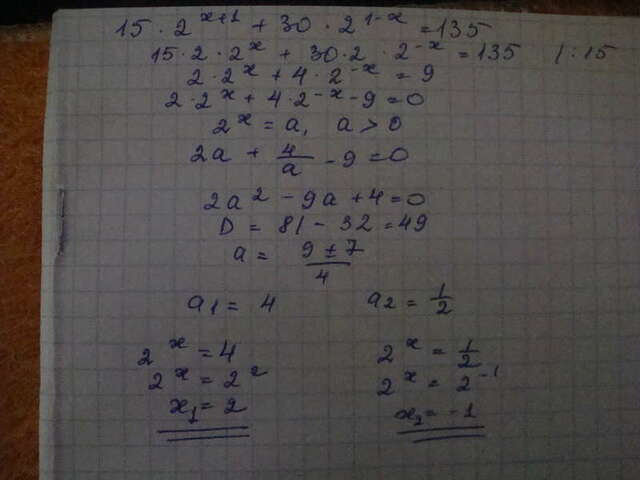 15 · 2^(x+1) + 30 · 2^(1-x) = 135
15 · 2 · 2^x + 30 · 2 · 2^(-x) = 135 /: 15
2 · 2^x + 4 · 2^(-x) = 9
2 · 2^x + 4 · 2^(-x) - 9 = 0
2^x = a, a > 0
2a + 4/a - 9 = 0
2a² - 9a + 4 = 0
D = 81 - 32 = 49
a = (9 ± 7)/4
a₁ = 4 a₂ = 1/2
2^x = 4 2^x = 1/2
2^x = 2² 2^x = 2^(-1)
x₁ = 2 x₂ = -1